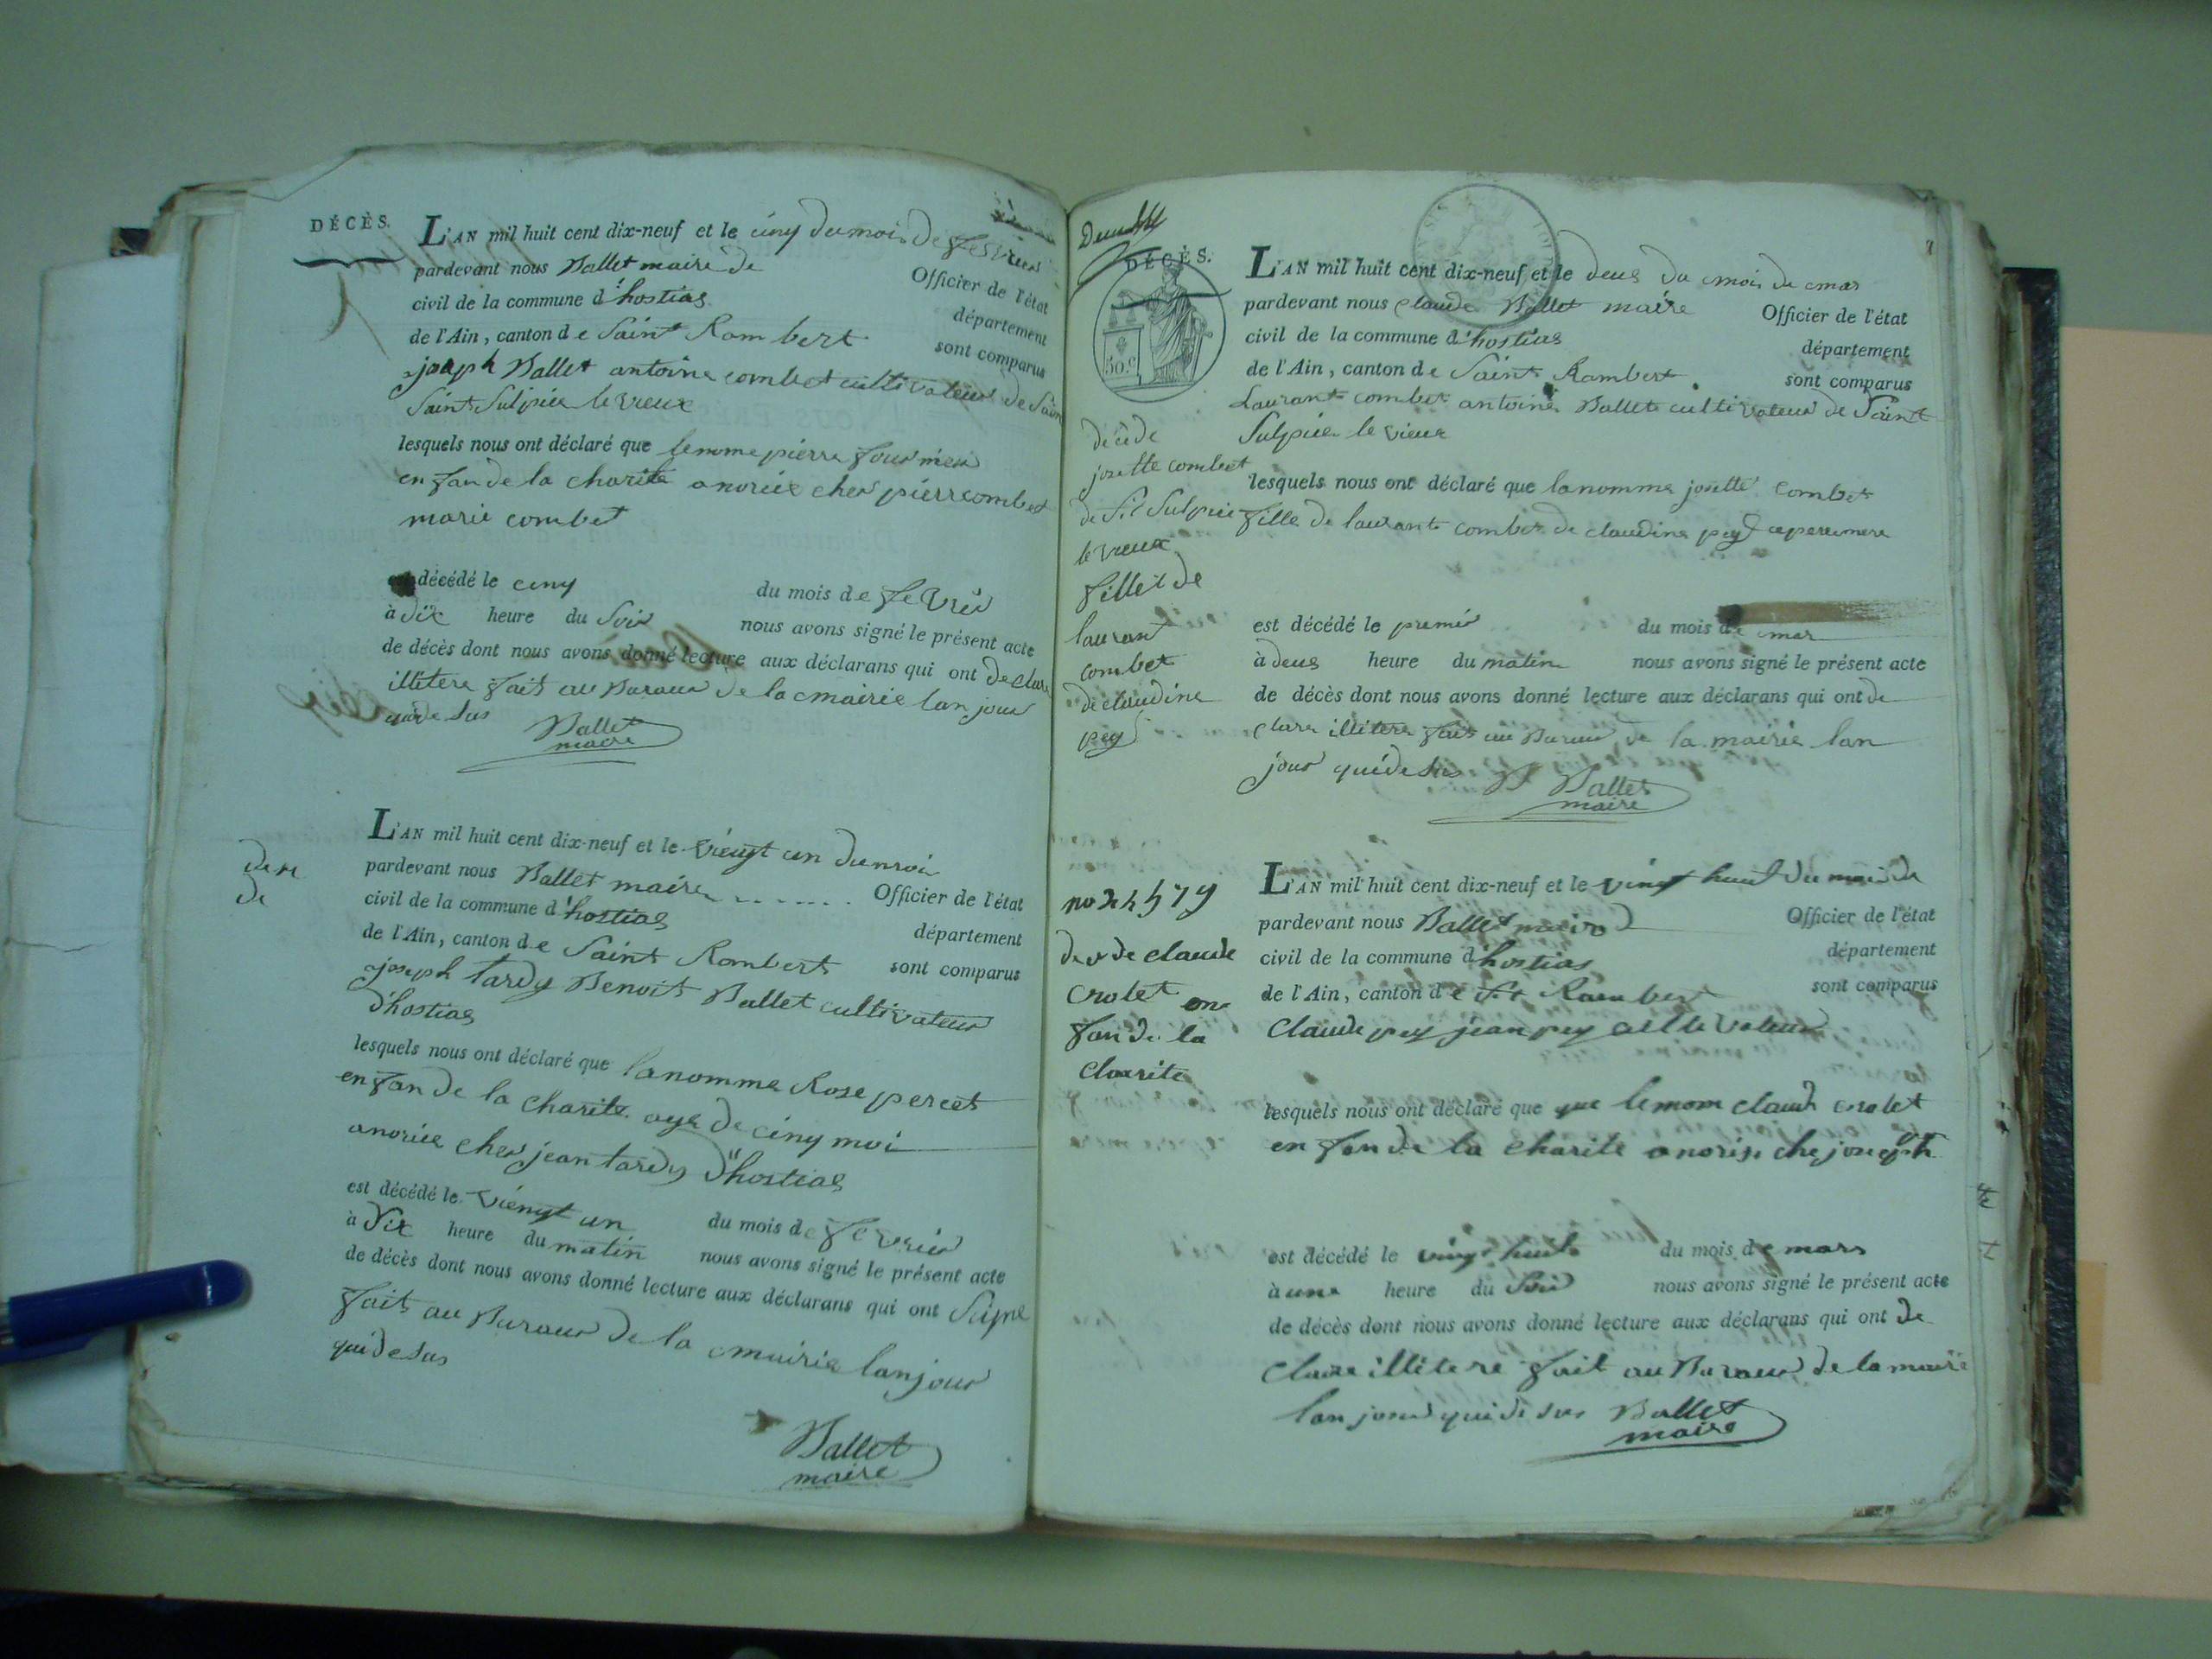 DÉCÈS.
L'AN mil huit cent dix-neuf et le cinq du mois de fevrier
pardevant nous Ballet maire de Officier de l'état
civil de la commune d'hostias département
de l'Ain, canton de Saint Rambert sont comparus
joseph Ballet antoine combet cultivateur de Sain
Saint Sulpice le vieux
lesquels nous ont déclaré que le nome pierre
en fan de la charite anoriée ches pierre combet
marie combet
est décédé le cinq du mois de fevrier
à dix heure du Soir nous avons signé le présent acte
de décès dont nous avons donné lecture aux déclarans qui ont declare
illitere fait au Bureau de la mairie lan jour
que de sus Ballet
maire
L'AN mil huit cent dix-neuf et le viengt un du moi
pardevant nous Ballet maire Officier de l'état
civil de la commune d'hostias département
de l'Ain, canton de Saint Rambert sont comparus
joseph tardy Benoit Ballet cultivateur
d'hostias
lesquels nous ont déclaré que la nomme Rose percet
en fan de la charite age de cinq moi
anoriée ches jean tardy d'hostias
est décédé le viengt un du mois de fevrier
à dix heure du matin nous avons signé le présent acte
de décès dont nous avons donné lecture aux déclarans qui ont Signe
fait au Bureau de la mairie lan jour
qui de sus
Ballet
maire
DÉCÈS.
50.c
L'AN mil huit cent dix-neuf et le deus du mois de mar
pardevant nous claude Ballet maire Officier de l'état
civil de la commune d'hostias département
de l'Ain, canton de Saint Rambert sont comparus
Laurant combet antoine Ballet cultivateur de Saint
Sulpice le vieux
lesquels nous ont déclaré que la nomme josette combet
fille de laurant combet de claudine pey ce pere mere
est décédé le premier du mois de mar
à deus heure du matin nous avons signé le présent acte
de décès dont nous avons donné lecture aux déclarans qui ont de
clare illitere fait au Bureau de la mairie lan
jour qui de sus Ballet
maire
décede
josette combet
de St Sulpice
le vieux
fille de
laurant
combet
de claudine
pey
L'AN mil huit cent dix-neuf et le vingt huit du mois de
pardevant nous Ballet maire Officier de l'état
civil de la commune d'hostias département
de l'Ain, canton de St Rambert sont comparus
Claude pey jean pey cultivateur
lesquels nous ont déclaré que que le nom claude crolet
en fan de la charite anorise che joseph
est décédé le vingt huit du mois de mars
à une heure du Soir nous avons signé le présent acte
de décès dont nous avons donné lecture aux déclarans qui ont de
clare illitere fait au Bureau de la mairie
lan jour qui de sus Ballet
maire
de claude
crolet en
fan de la
charite